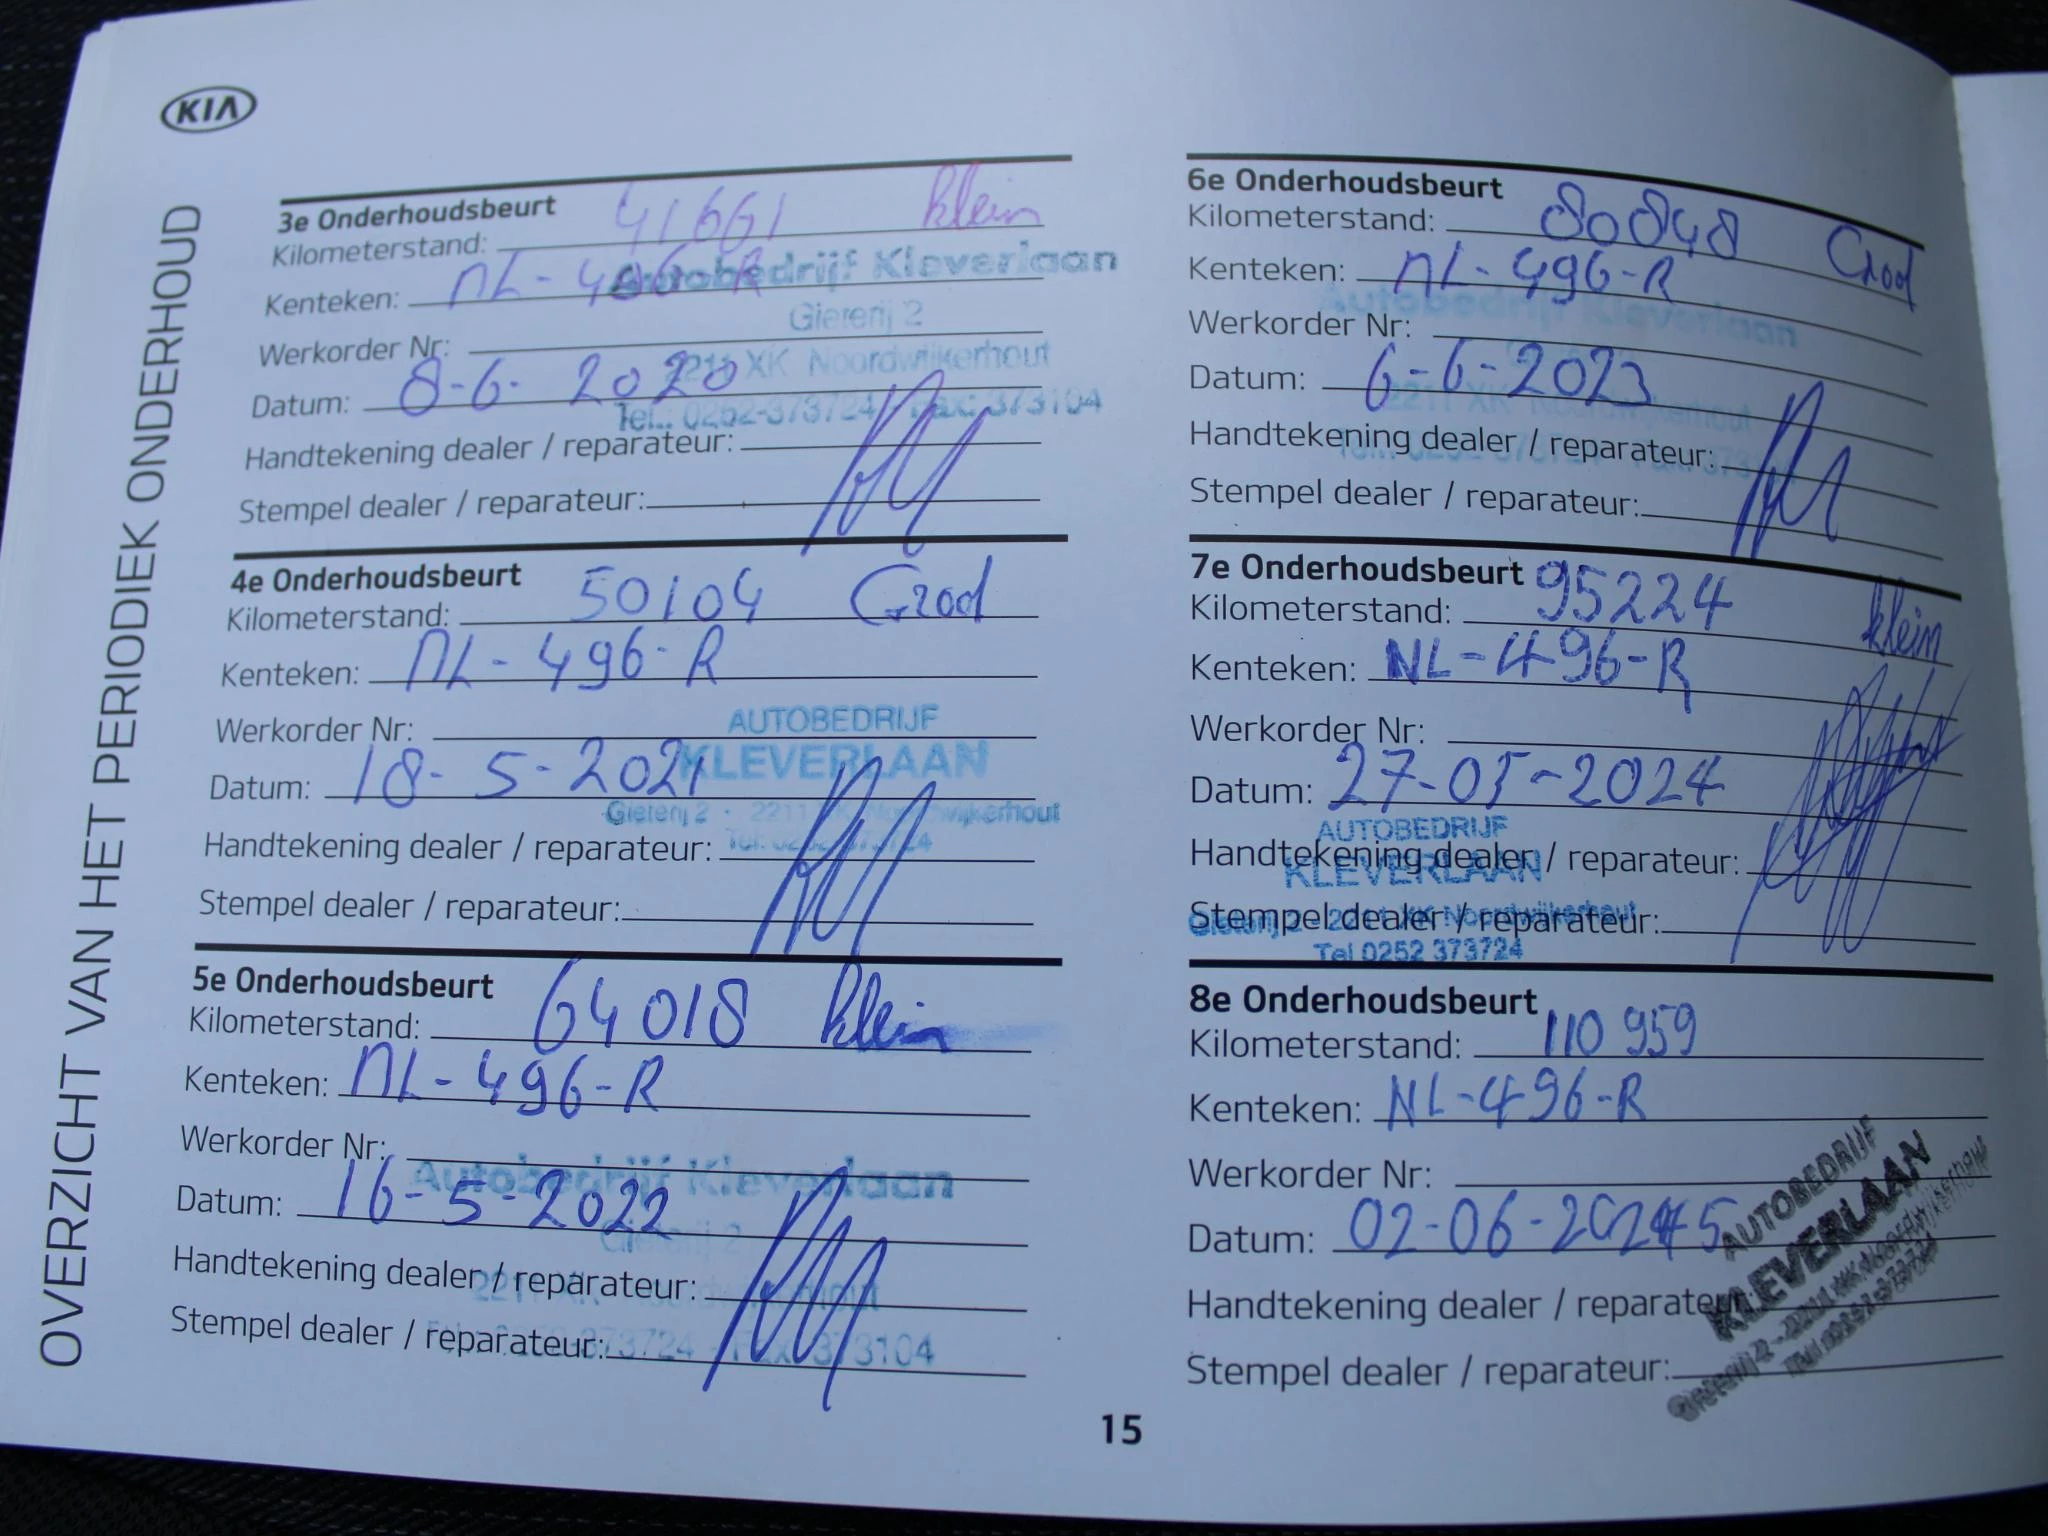 KIA
OVERZICHT VAN HET PERIODIEK ONDERHOUD
3e Onderhoudsbeurt
Kilometerstand: 41661 klein
Kenteken: NL-496-R
Autobedrijf Kleverlaan
Gieterij 2
Werkorder Nr:
2211 XK Noordwijkerhout
Datum: 8-6-2020
Tel.: 0252-373724 - Fax: 373104
Handtekening dealer / reparateur:
Stempel dealer / reparateur:
4e Onderhoudsbeurt
Kilometerstand: 50104 Groot
Kenteken: NL-496-R
AUTOBEDRIJF
Werkorder Nr:
KLEVERLAAN
Datum: 18-5-2021
Gieterij 2 - 2211 XK Noordwijkerhout
Tel: 0252 373724
Handtekening dealer / reparateur:
Stempel dealer / reparateur:
5e Onderhoudsbeurt
Kilometerstand: 64018 klein
Kenteken: NL-496-R
Werkorder Nr:
Autobedrijf Kleverlaan
Datum: 16-5-2022
Gieterij 2
Handtekening dealer / reparateur:
2211 XK Noordwijkerhout
Stempel dealer / reparateur:
0252-373724 - Fax: 373104
6e Onderhoudsbeurt
Kilometerstand: 80848 Groot
Kenteken: NL-496-R
Autobedrijf Kleverlaan
Werkorder Nr:
Datum: 6-6-2023
2211 XK Noordwijkerhout
Handtekening dealer / reparateur:
Tel.: 0252-373724 - Fax: 373104
Stempel dealer / reparateur:
7e Onderhoudsbeurt
Kilometerstand: 95224 klein
Kenteken: NL-496-R
Werkorder Nr:
Datum: 27-05-2024
AUTOBEDRIJF
Handtekening dealer / reparateur:
KLEVERLAAN
Stempel dealer / reparateur:
Gieterij 2 - 2211 XK Noordwijkerhout
Tel 0252 373724
8e Onderhoudsbeurt
Kilometerstand: 110 959
Kenteken: NL-496-R
Werkorder Nr:
Datum: 02-06-2025
Handtekening dealer / reparateur:
Stempel dealer / reparateur:
AUTOBEDRIJF
KLEVERLAAN
Gieterij 2 - 2211 XK Noordwijkerhout
Tel 0252 373724
15